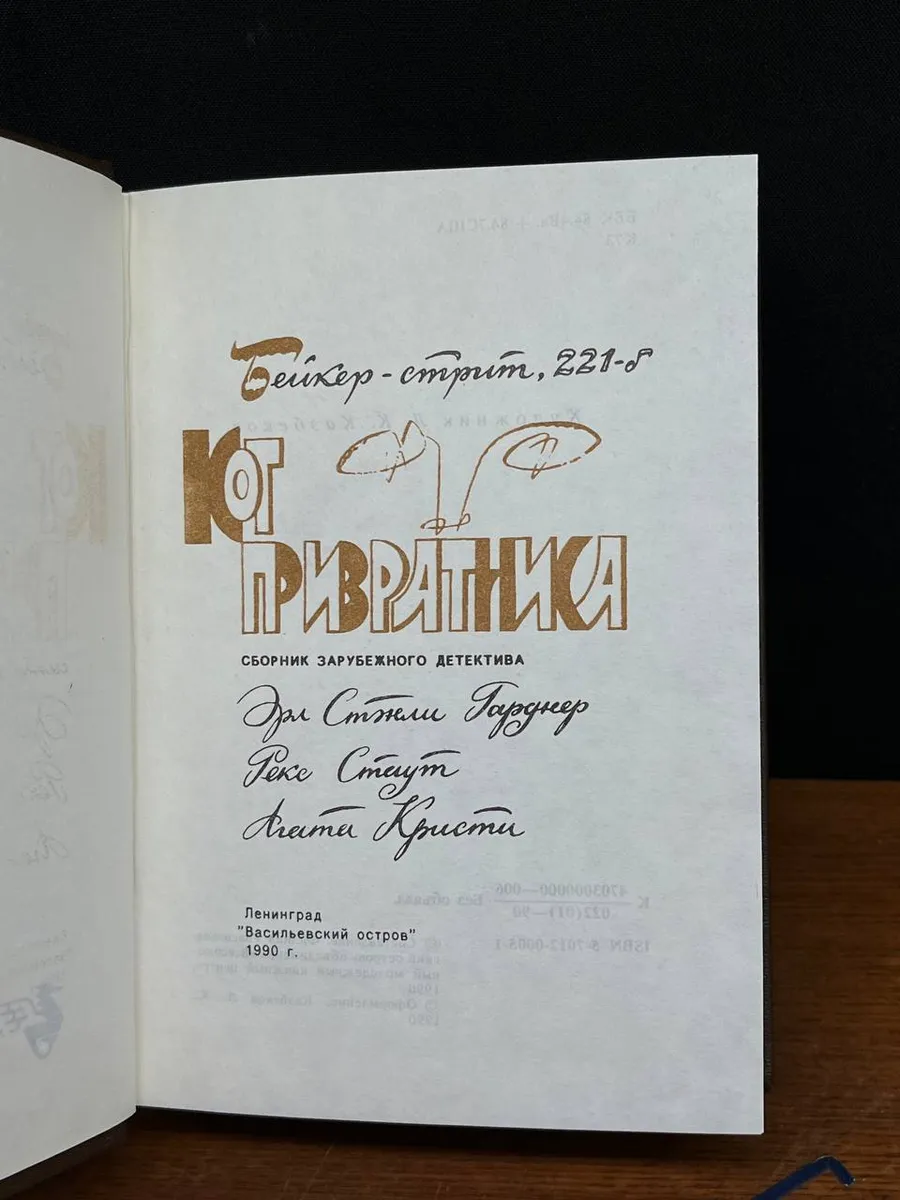 Бейкер-стрит, 221-б
КОТ
ПРИВРАТНИКА
СБОРНИК ЗАРУБЕЖНОГО ДЕТЕКТИВА
Эрл Стэнли Гарднер
Рекс Стаут
Агата Кристи
Ленинград
"Васильевский остров"
1990 г.